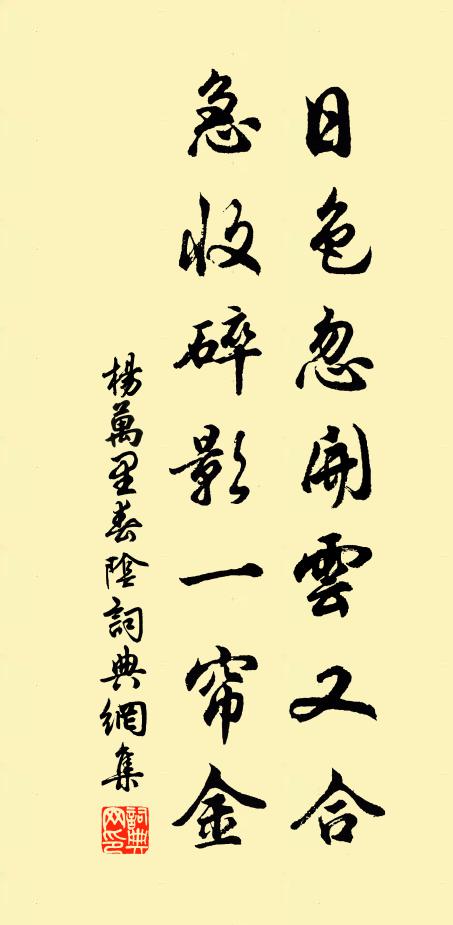 日色忽開雲又合
急收碎影一帘金
楊萬里春陰詞典網集
詞典网印